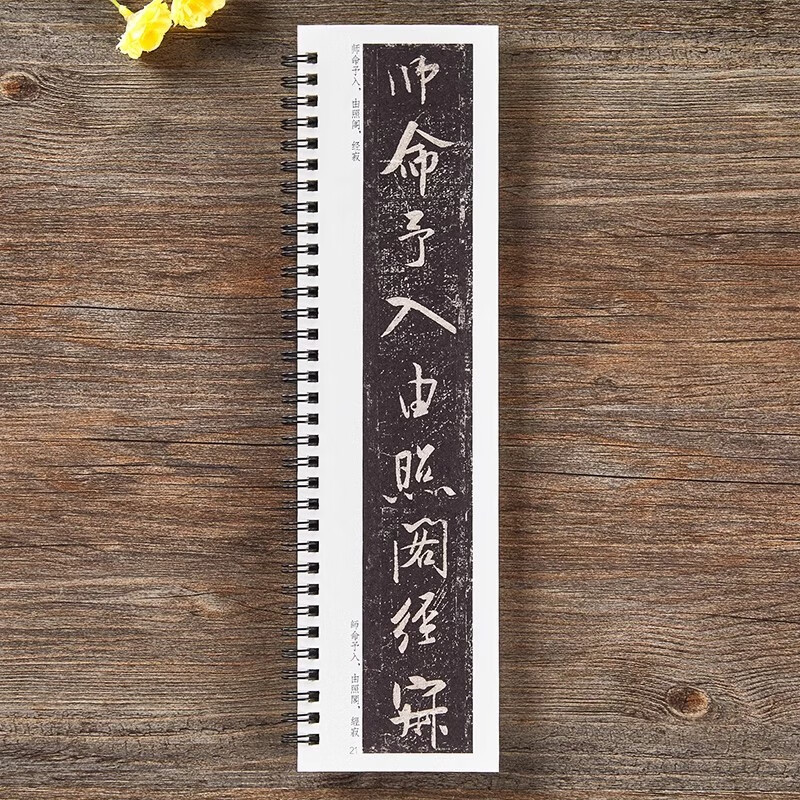 师命予入由照阁经寂
师命予入，由照阁，经寂
師命予入，由照閣，經寂
21